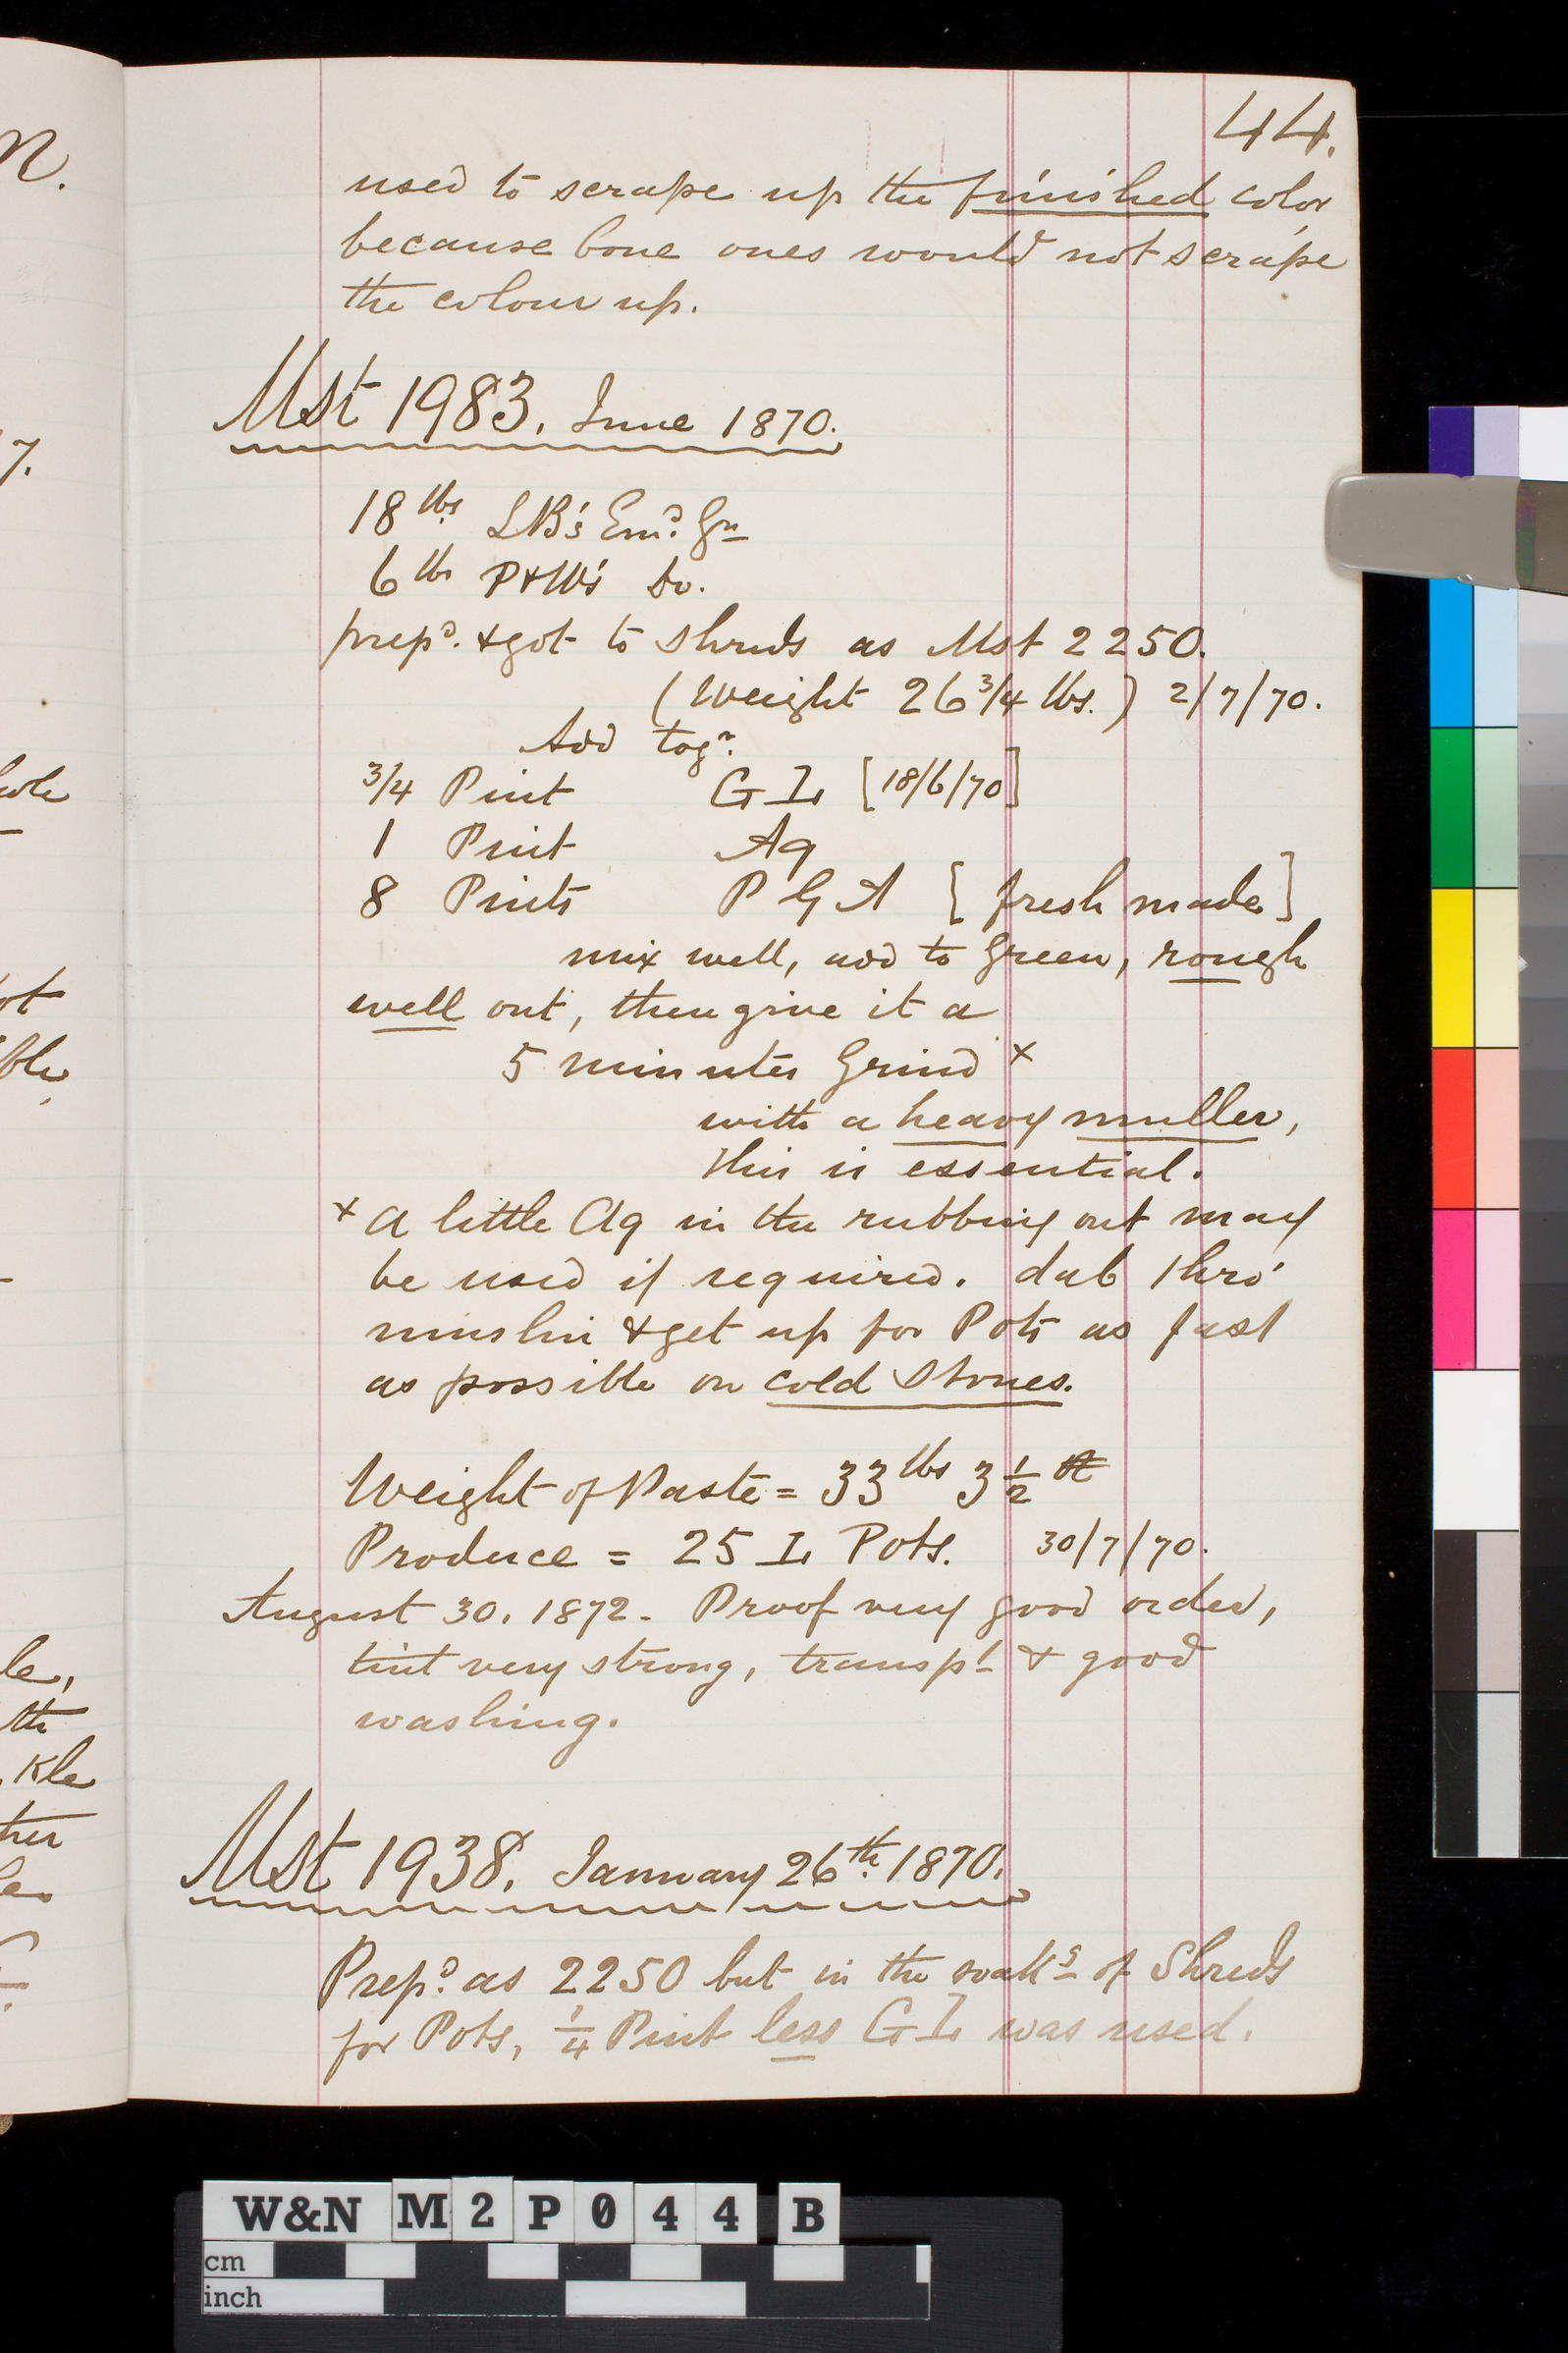 44.
used to scrape up the finished color,
because bone ones would not scrape
the colour up.
Mst 1983. June 1870.
18 lbs LB's Emd. Gn
6 lbs P&W's Do.
prepd. & got to Shreds as Mst 2250.
(Weight 26 3/4 lbs.) 2/7/70.
Add togr.
3/4 Pint G L [18/6/70]
1 Pint Aq
8 Pints P G A [fresh made]
mix well, add to Green, rough
well out, then give it a
5 minutes Grind x
with a heavy muller,
this is essential.
x a little Aq in the rubbing out may
be used if required. dab thro'
muslin & get up for Pots as fast
as possible on cold Stones.
Weight of Paste = 33 lbs 3 1/2
Produce = 25 L Pots. 30/7/70.
August 30. 1872 - Proof very good order,
tint very strong, transpt & good
washing.
Mst 1938. January 26th. 1870.
Prepd. as 2250 but in the soakg of Shreds
for Pots, 1/4 Pint less G L was used.
n.
7.
ot
ble,
le,
th
kle
ther
W&N M2P044 B
cm
inch